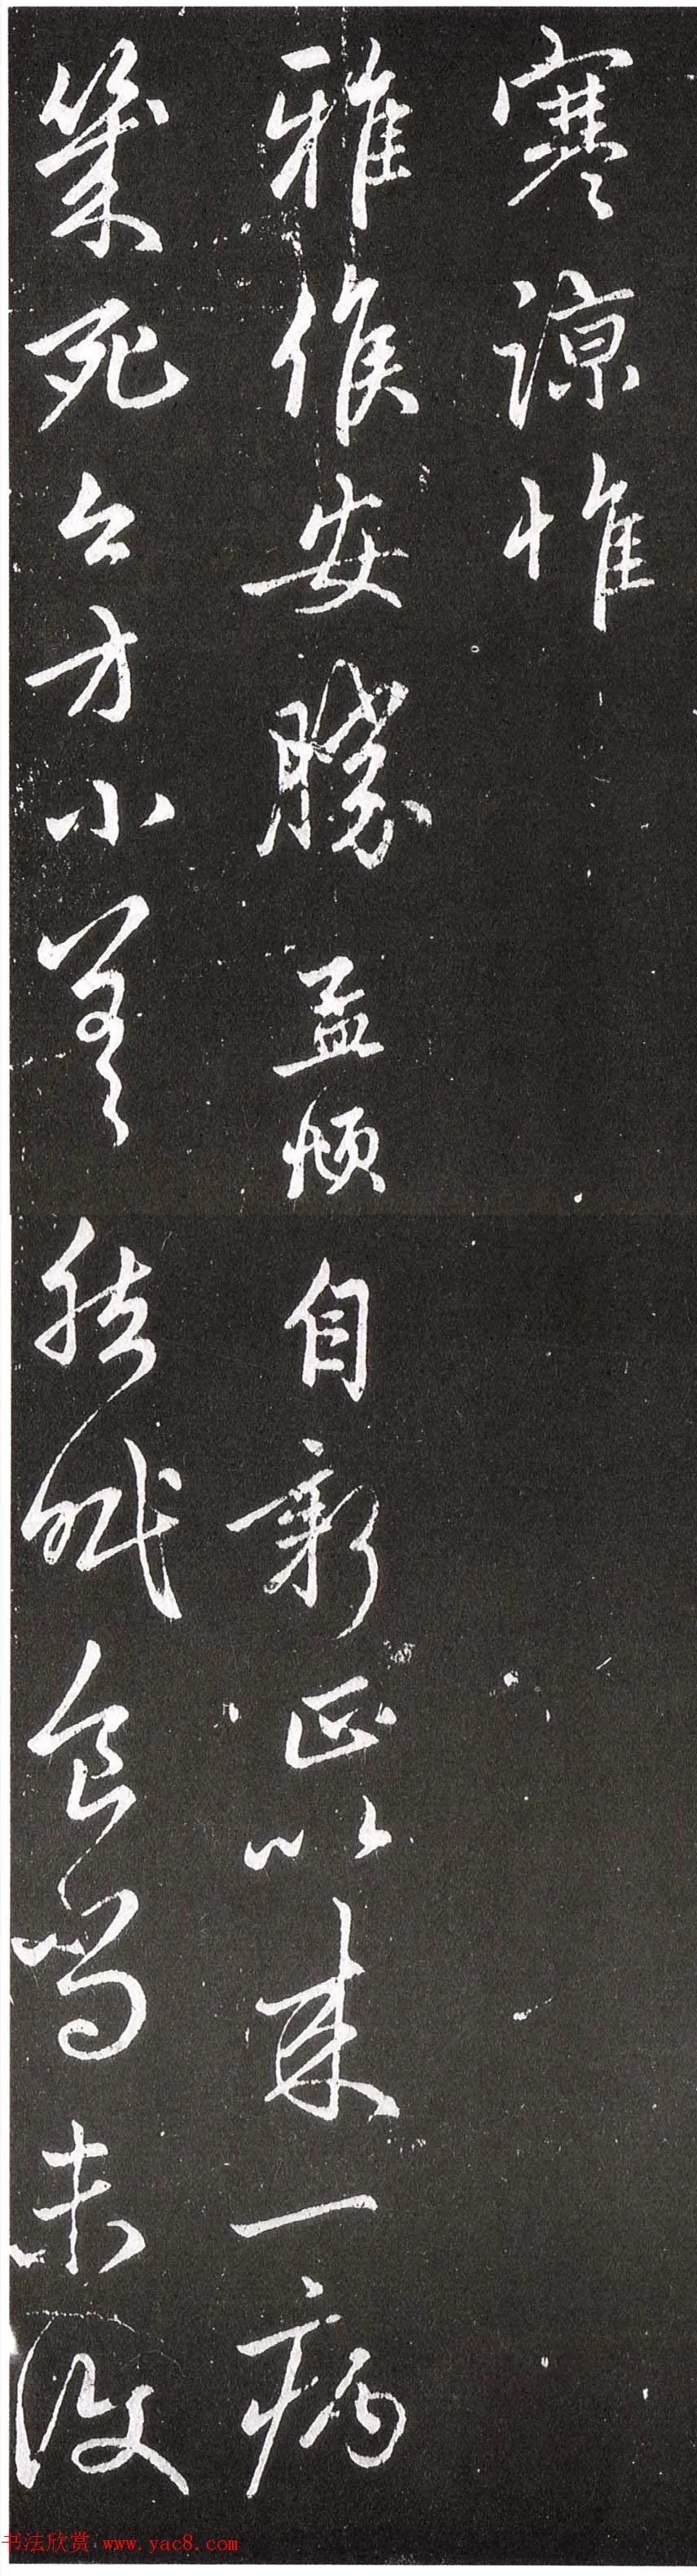 寒諒惟
雅候安勝孟頫自新正以来一病
幾死今方小差然眠食尚未復
书法欣赏 www.yac8.com